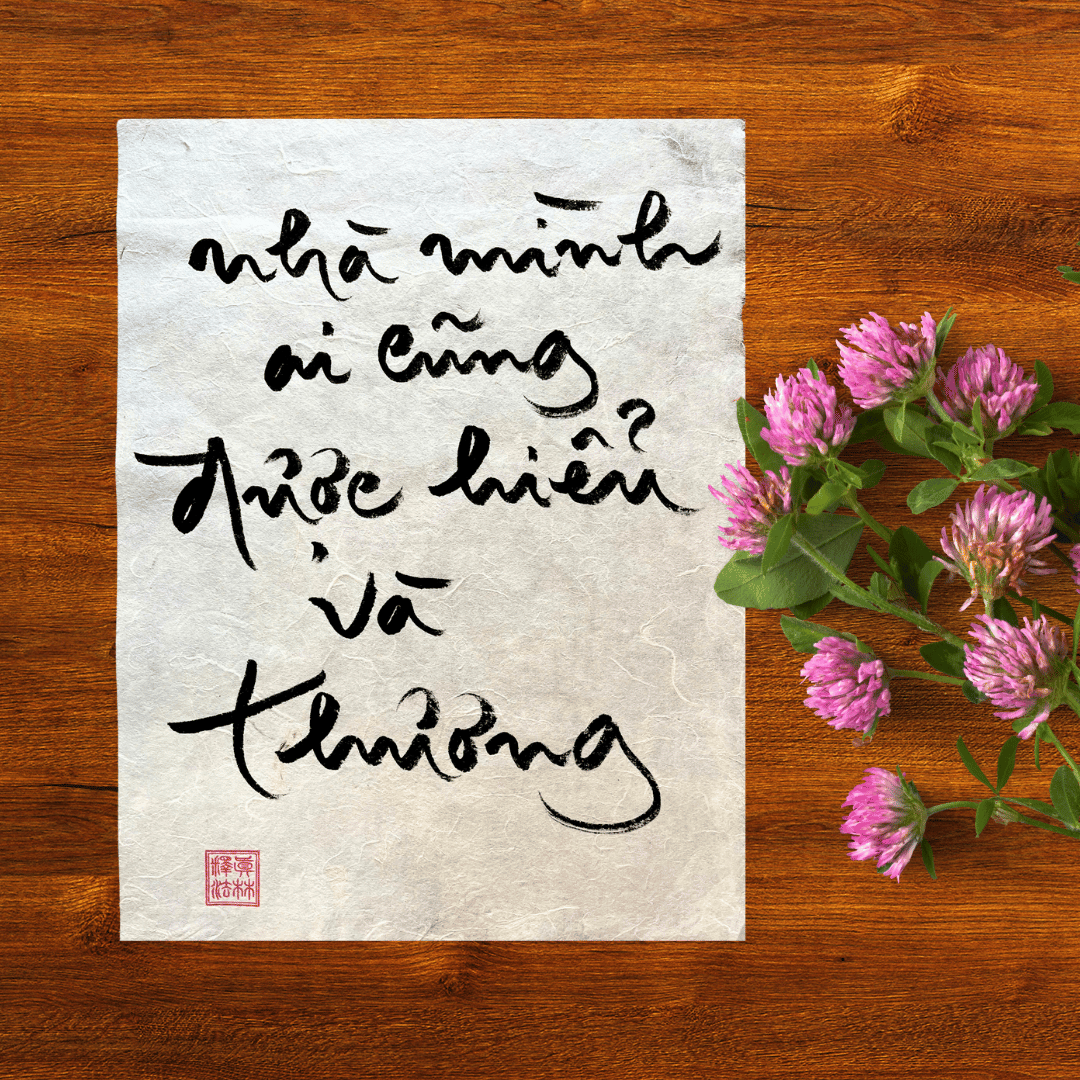 nhà mình
ai cũng
được hiểu
và
thương
釋真
法林